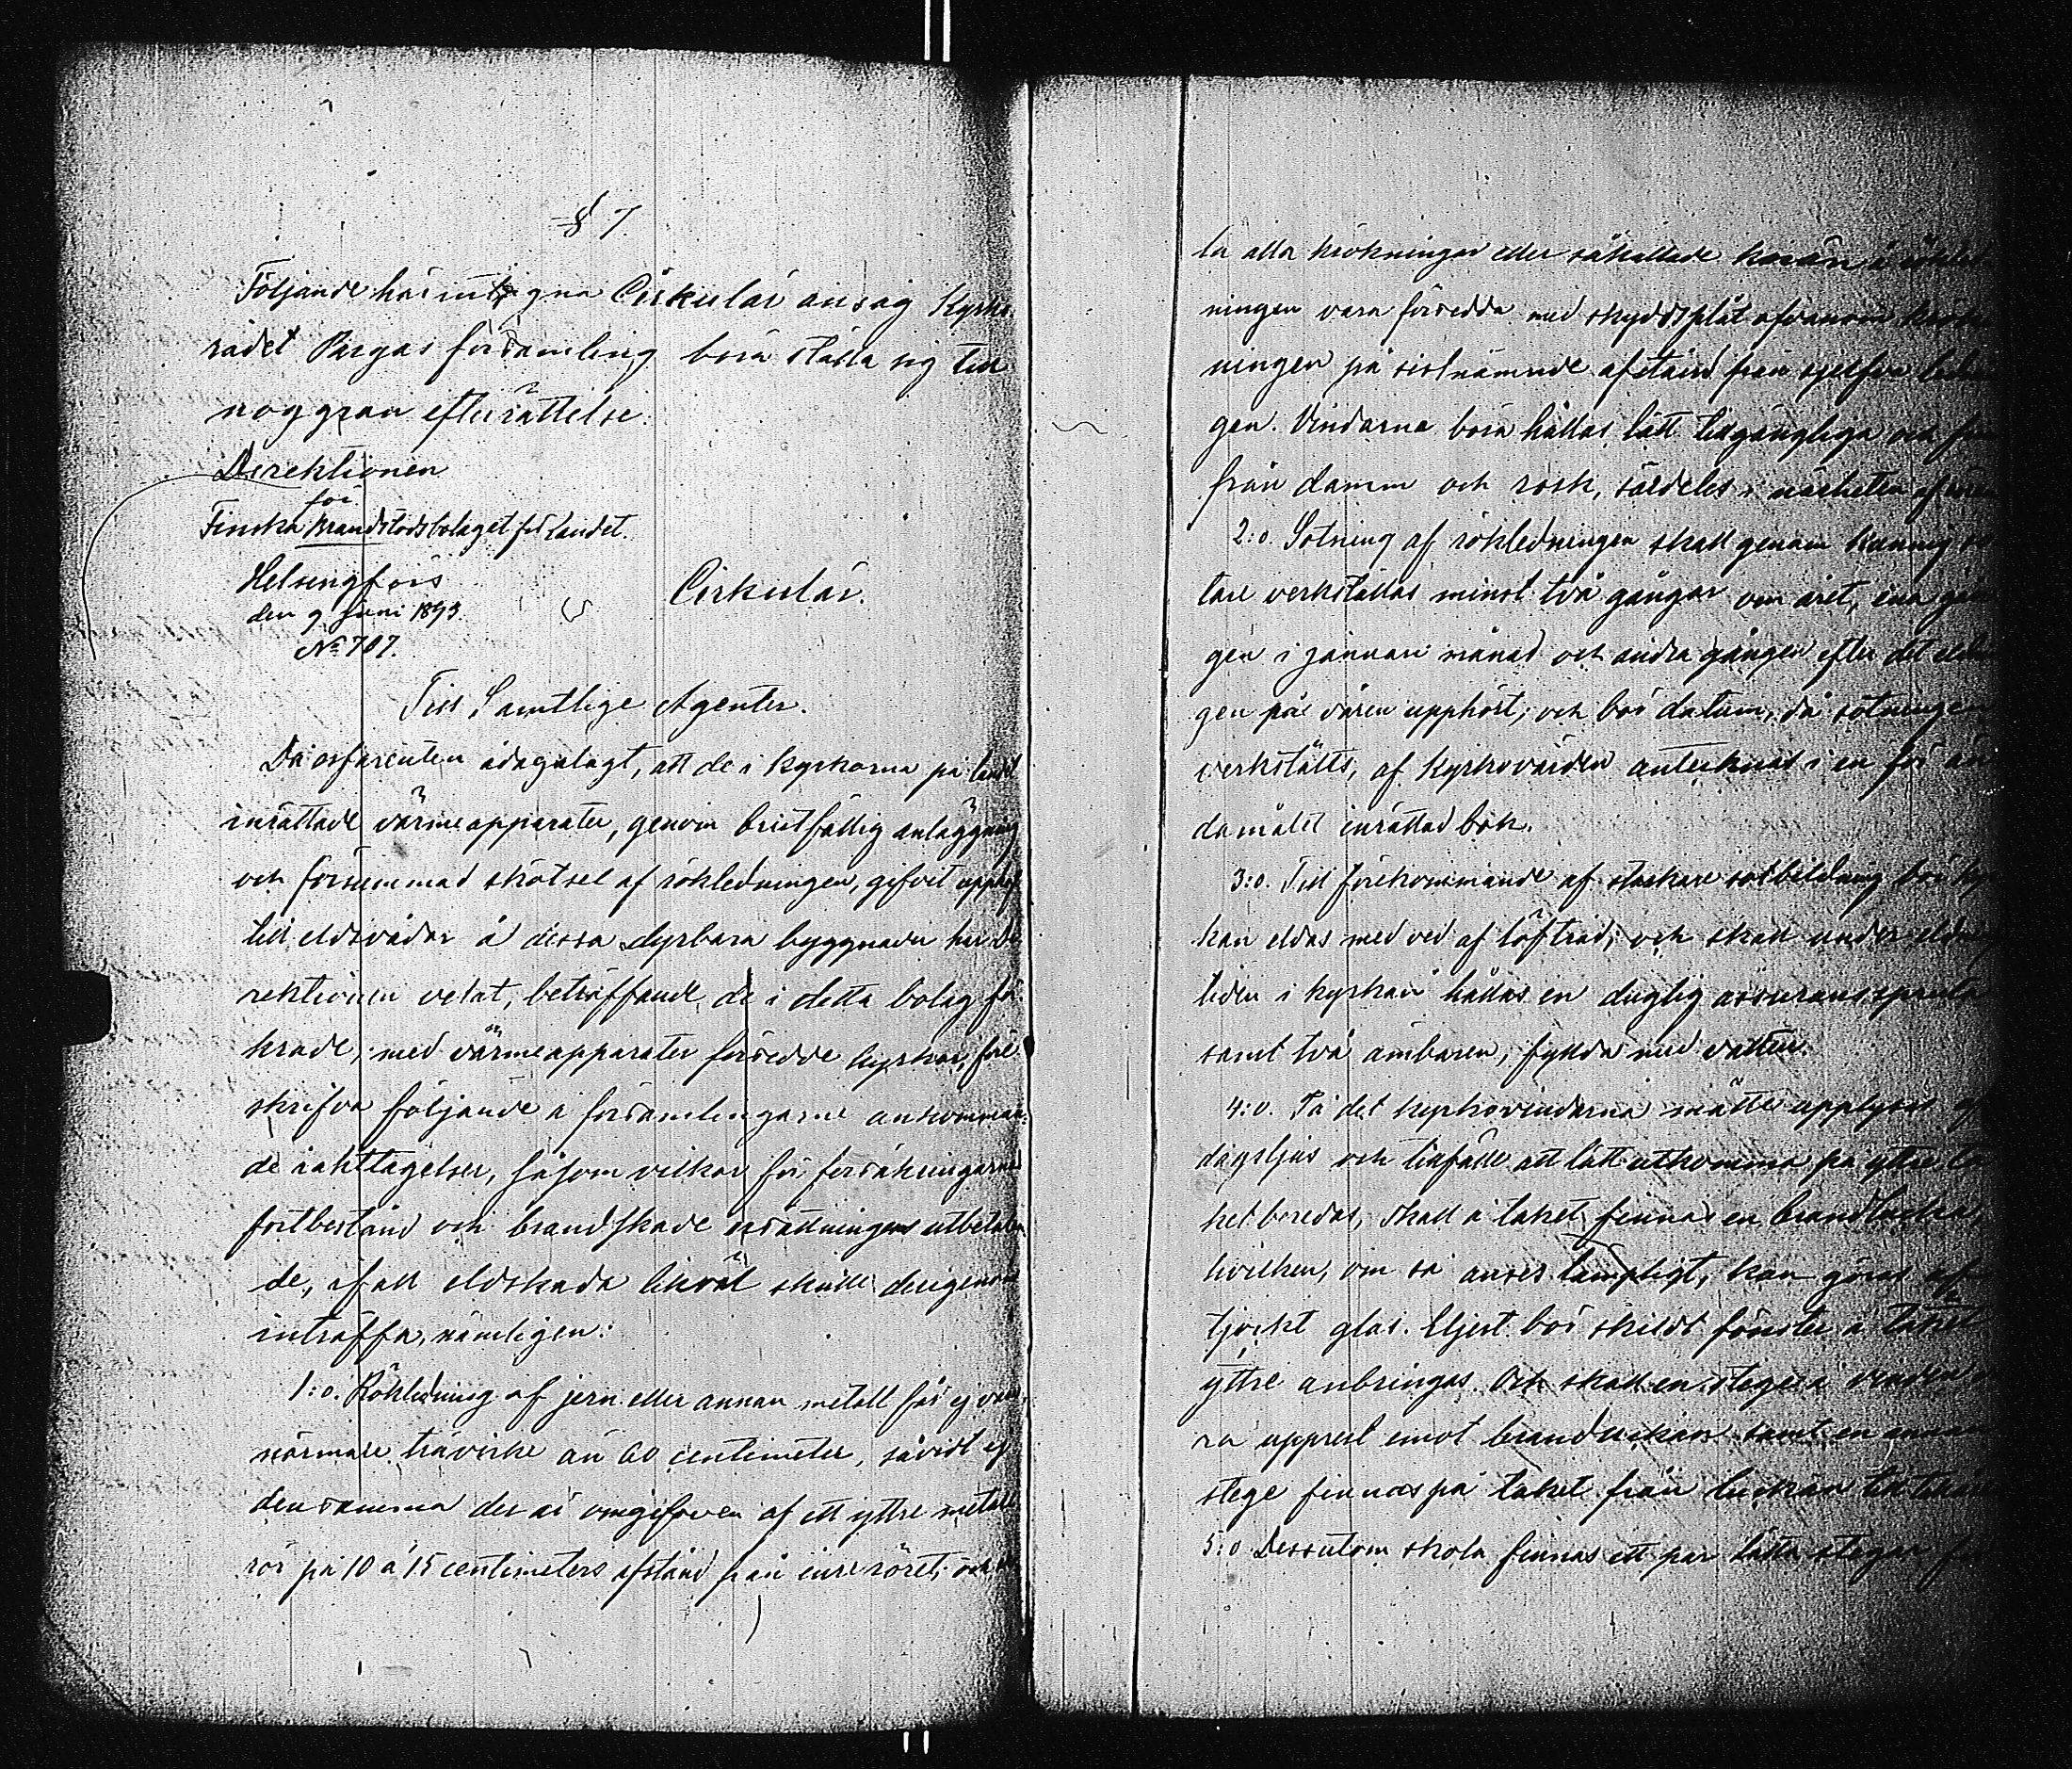 § 7.
Följande härintagna Cirkulär ansåg Kyrko
rådet Pargas församling böra ställa sig till
noggran efterrättelse.
Direktionen
för
Finska Brandstodsbolaget för Landet.
Helsingfors
den 9 Juni 1893.
No 707.
Cirkulär.
Till Samtlige Agenter.
Då erfarenten ådagalagt, att de i kyrkorna på landet
inrättade värmeapparater, genom bristfällig anläggning
och försummad skötsel af rökledningen, gifvit upphof
till eldsvådor å dessa dyrbara byggnader har Di
rektionen velat, beträffande de i detta bolag för
krade, med värmeapparater försedde kyrkor, före
skrifva följande å församlingarne ankomman
de iakttagelser, såsom vilkor för försäkringarnes
fortbestånd och brandskade ersättningens utbetalan
de, ifall eldskada likväl skulle derigenom
inträffa, nämligen:
1:o. Rökledning af jern eller annan metall får ej vara
närmare trävirke än 60 centimeter, såvidt ej
densamma der är omgifven af ett yttre metall
rör på 10 à 15 centimeters afstånd från inre röret; och
la alla krökningar eller såkallade knän i rökled
ningen vara försedda med skyddsplåt ofvanom krök
ningen på sistnämnde afstånd från sjelfva lednin
gen. Vindarna böra hållas lätt tillgängliga och fria
från damm och rosk, särdeles i närheten af
2:o. Sotning af rökledningen skall genom kunnig so
tare verkställas minst två gångar om året, ena gån
gen i januari månad och andra gången efter det eldnin
gen på våren upphört; och bör datum, då sotningen
verkställts, af kyrkovärden antecknas i en för än
damålet inrättad bok.
3:o. Till förekommande af starkare sotbildning bör kyr
kan eldas med ved af löfträd; och skall under eldnings
tiden i kyrkan hållas en duglig assuransspruta
samt två ämbaren, fyllda med vatten.
4:o. På det kyrkovindarna måtte upplysas af
dagsljus och tillfälle att lätt utkomma på yttre ta
ket beredas, skall å taket finnas en brandlucka,
hvilken, om så anses lämpligt, kan göras af
tjockt glas. Eljest bör skildt fönster å taket
yttre anbringas. Och skall en stege å vinden va
ra upprest emot brandluckan samt en annan
stege finnas på taket från luckan till
5:o Dessutom skola finnas ett par lätta stegar